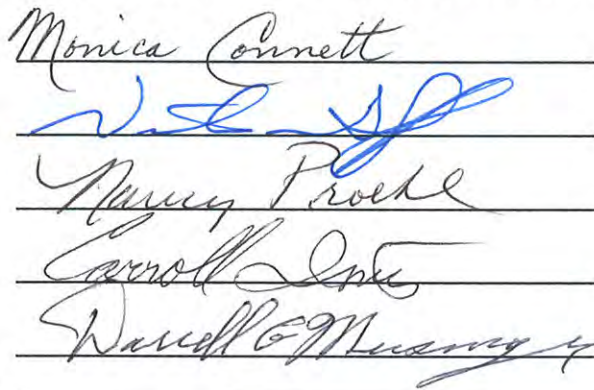 Monica Connett
Nancy Proehl
Carroll Imig
Darrell G Meisinger